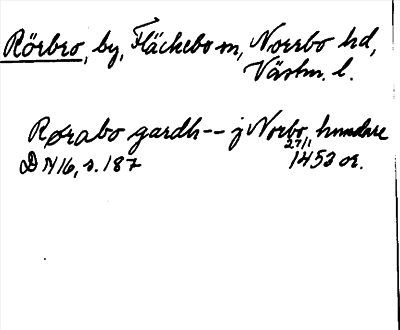 Rörbro, by, Fläckebo sn, Norrbo hd,
Västm. l.
Rørabo gardh -- j Norbo hundare
D N 16, s. 187
27/1
1453 or.